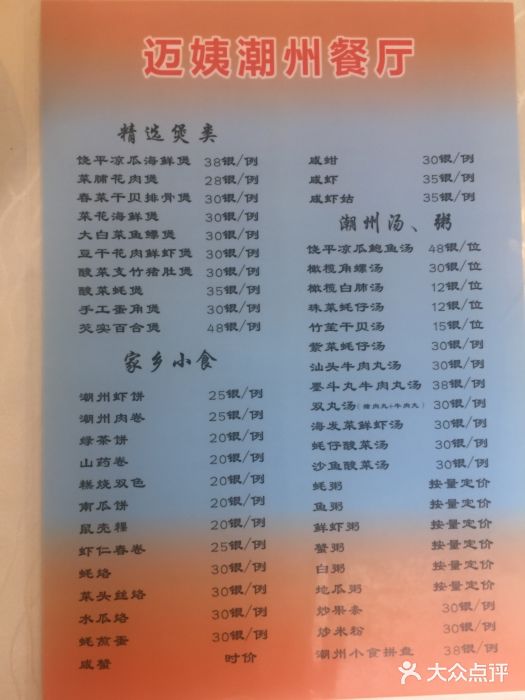 迈姨潮州餐厅
精选煲类
饶平凉瓜海鲜煲 38银/例
菜脯花肉煲 28银/例
春菜干贝排骨煲 30银/例
菜花海鲜煲 30银/例
大白菜鱼鳔煲 30银/例
豆干花肉鲜虾煲 30银/例
酸菜支竹猪肚煲 30银/例
酸菜蚝煲 35银/例
手工蛋角煲 30银/例
芡实百合煲 48银/例
家乡小食
潮州虾饼 25银/例
潮州肉卷 25银/例
绿茶饼 20银/例
山药卷 20银/例
糕烧双色 20银/例
南瓜饼 20银/例
鼠壳粿 20银/例
虾仁春卷 25银/例
蚝烙 30银/例
菜头丝烙 30银/例
水瓜烙 30银/例
蚝煎蛋 30银/例
咸蟹 时价
咸蚶 30银/例
咸虾 35银/例
咸虾姑 35银/例
潮州汤、粥
饶平凉瓜鲍鱼汤 48银/位
橄榄角螺汤 30银/位
橄榄白肺汤 12银/位
珠菜蚝仔汤 12银/位
竹笙干贝汤 15银/位
紫菜蚝仔汤 30银/例
汕头牛肉丸汤 30银/例
墨斗丸牛肉丸汤 38银/例
双丸汤(猪肉丸+牛肉丸) 30银/例
海发菜鲜虾汤 30银/例
蚝仔酸菜汤 30银/例
沙鱼酸菜汤 30银/例
蚝粥 按量定价
鱼粥 按量定价
鲜虾粥 按量定价
蟹粥 按量定价
白粥 按量定价
地瓜粥 按量定价
炒果条 30银/例
炒米粉 30银/例
潮州小食拼盘 38银/例
大众点评